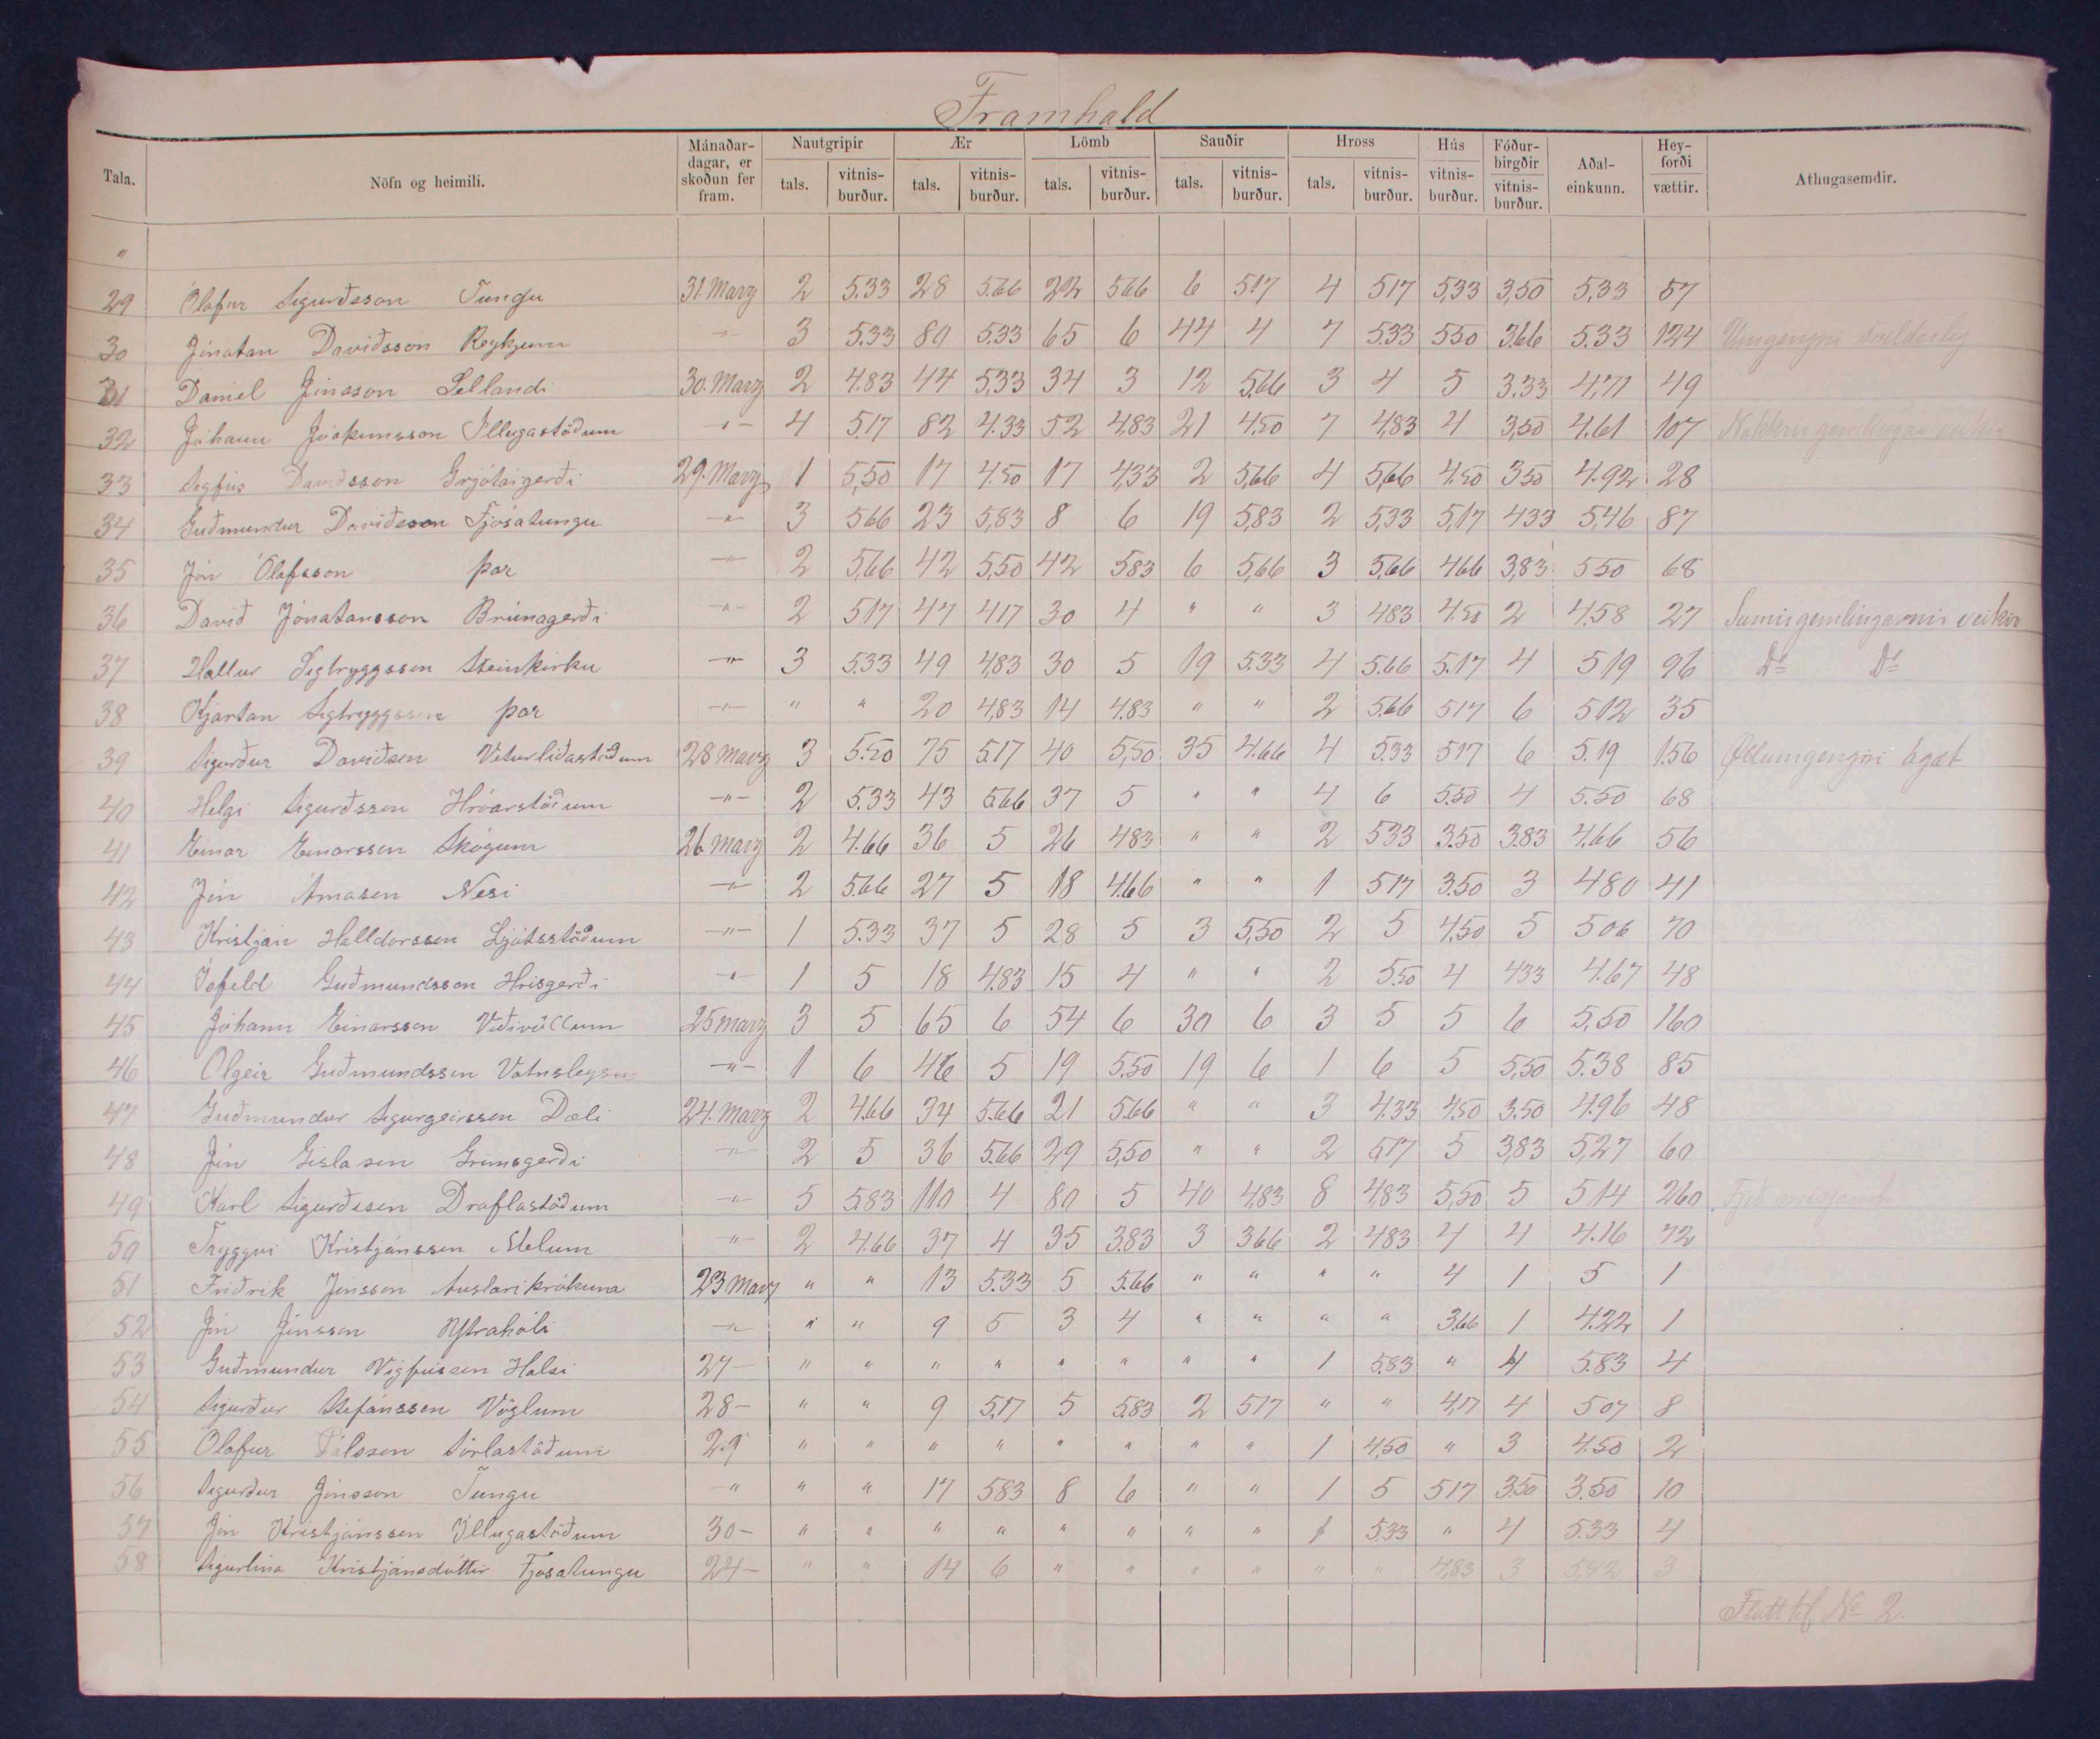 Framhald
Tala. Nöfn og heimili. Mánaðar-dagar, er skoðun fer fram. Nautgripir tals. vitnis-burður. Ær tals. vitnis-burður. Lömb tals. vitnis-burður. Sauðir tals. vitnis-burður. Hross tals. vitnis-burður. Hús vitnis-burður. Fóður-birgðir vitnis-burður. Aðal-einkunn. Hey-forði vættir. Athugasemdir.
"
29 Ólafur Sigurðsson Tungu 31. Marz 2 5.33 28 5.66 22 566 6 517 4 517 5,33 3,50 5,33 57
30 Jónatan Davíðsson Reykjum -"- 3 5.33 80 5.33 65 6 44 4 7 5.33 550 3.66 5.33 124 Umgengni
31 Daníel Jónsson Sellandi 30. Marz 2 4.83 44 5,33 34 3 12 5,66 3 4 5 3.33 4,71 49
32 Jóhann Jóakimsson Illugastöðum -"- 4 5.17 82 4.33 52 4,83 21 4.50 7 4,83 4 3,50 4.61 107 Nokkrir gemlingar veikir
33 Sigfús Davíðsson Grjótárgerði 29. Marz 1 5,50 17 4.50 17 4,33 2 5,66 4 5,66 4.50 350 4.92 28
34 Guðmundur Davíðsson Fjósatungu -"- 3 566 23 5,83 8 6 19 5,83 2 5,33 5,17 433 5,46 87
35 Jón Ólafsson þar -"- 2 5,66 42 5,50 42 583 6 5,66 3 5,66 466 3,83 550 68
36 Davíð Jónatansson Brúnagerði -"- 2 517 47 417 30 4 " " 3 483 4.50 2 4.58 27 Sumir gemlingarnir veikir
37 Hallur Sigtryggssen Steinkirku -"- 3 5.33 49 4,83 30 5 19 5.33 4 5.66 5.17 4 519 96 Do Do
38 Kjartan Sigtryggssen þar -"- " " 20 4,83 14 4.83 " " 2 5.66 517 6 512 35
39 Sigurður Davíðsen Veturliðastöðum 28 Marz 3 5.50 75 517 40 5,50 35 4.66 4 5.33 517 6 5.19 156 Øllumgengni ágæt
40 Helgi Sigurðssen Hróarstöðum -"- 2 5.33 43 566 37 5 " " 4 6 5.50 4 5.50 68
41 Einar Einarssen Skógum 26 Marz 2 4.66 36 5 26 483 " " 2 533 3.50 3.83 4.66 56
42 Jón Árnasen Nesi -"- 2 5.66 27 5 18 4.66 " " 1 517 3.50 3 480 41
43 Kristján Halldorssen Ljótsstöðum -"- 1 5.33 37 5 28 5 3 5,50 2 5 4,50 5 506 70
44 Ísfeld Guðmundsson Hrisgerði -"- 1 5 18 4.83 15 4 " " 2 5.50 4 433 4.67 48
45 Jóhann Einarssen Víðivöllum 25 Marz 3 5 65 6 54 6 30 6 3 5 5 6 5,50 160
46 Olgeir Guðmundssen Vatnsleysu -"- 1 6 46 5 19 5.50 19 6 1 6 5 5,50 5.38 85
47 Guðmundur Sigurgeirssen Dæli 24. Marz 2 4.66 34 5.66 21 5.66 " " 3 4.33 4,50 3.50 4.96 48
48 Jón Gíslasen Grímsgerði -"- 2 5 36 5.66 29 5,50 " " 2 517 5 3,83 5,27 60
49 Karl Sigurðssen Draflastöðum -"- 5 583 110 4 80 5 40 4,83 8 4,83 5,50 5 514 260 Fjeð misjamt
50 Tryggvi Kristjánssen Melum -"- 2 4.66 37 4 35 3.83 3 366 2 483 4 4 4.16 72
51 Friðrik Jónssen Austarikrókum 23 Marz " " 13 5.33 5 5.66 " " " " 4 1 5 1
52 Jón Jónssen Ytrahóli -"- " " 9 5 3 4 " " " " 3.66 1 4.22 1
53 Guðmundur Vigfússen Halsi 27- " " " " " " " " 1 5.83 " 4 5.83 4
54 Sigurður Stefánssen Vöglum 28- " " 9 5,17 5 5.83 2 517 " " 4,17 4 507 8
55 Ólafur Pálssen Sörlastöðum 29 " " " " " " " " 1 4,50 " 3 4.50 2
56 Sigurður Jónsson Tungu " " " 17 583 8 6 " " 1 5 517 3.50 3.50 10
57 Jón Kristjánssen Illugastöðum 30- " " " " " " " " 1 5.33 " 4 5.33 4
58 Sigurlína Kristjánsdóttir Fjósatungu 24- " " 14 6 " " " " " " 4,83 3 5,42 3
Flutt til No 2.